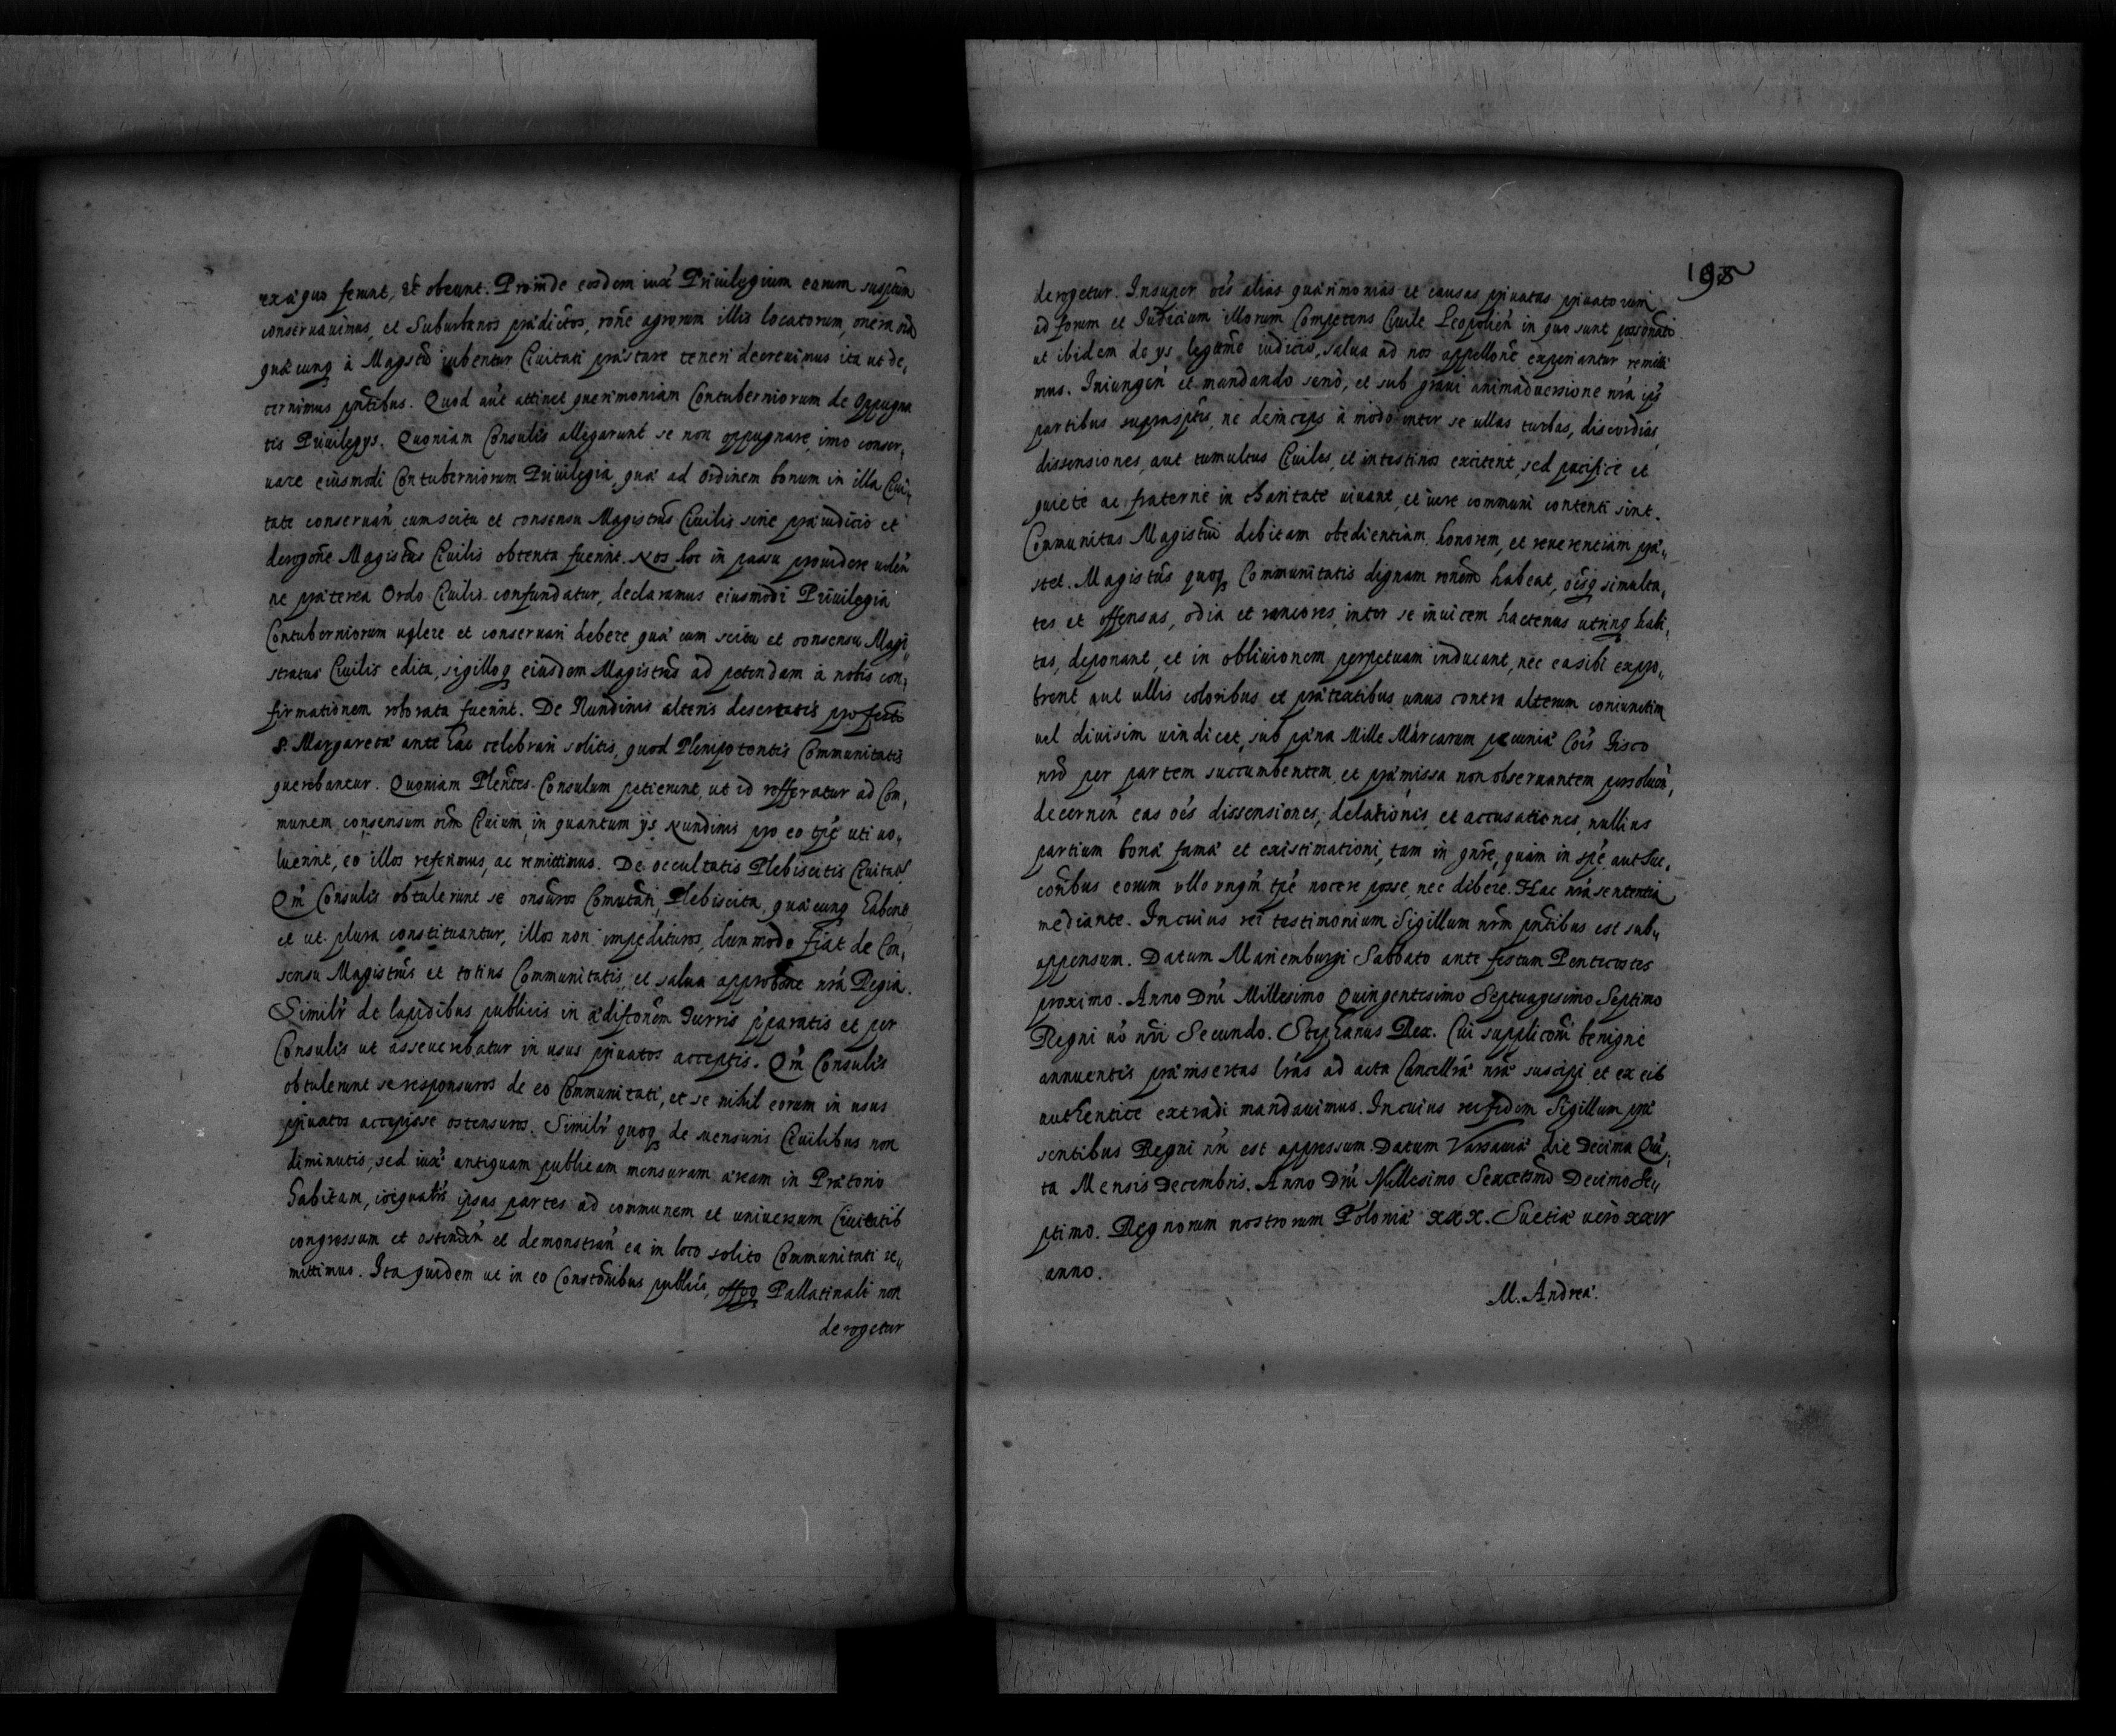 ex æquo ferunt, et obeunt. Proinde eosdem iux̃ Priuilegium eorum susptum
conseruauimus, et Suburbanos prædictos, rõne agrorum illis locatorum, onera
quæcunq à Magstũ iubentur Ciuitati præstare teneri decreuimus ita ut de,
cernimus pñtibus. Quod aũt attinet querimoniam Contuberniorum de oppugna
tis Priuilegys. Quoniam Consules allegarunt se non oppugnare, imo conser,
uare eiusmodi Contuberniorum Priuilegia, quæ ad ordinem bonum in illa Ciui,
tate conseruañ cum scitu et consensu Magistrũs Ciuilis sine præiudicio et
derogõne Magistrũs Ciuilis obtenta fuerint. Nos hoc in passu prouidere uoleñ
ne præterea Ordo Ciuilis confundatur, declaramus eiusmodi Priuilegia
Contuberniorum ualere et conseruari debere, quæ cum scitu et consensu Magi,
stratus Ciuilis edita, sigilloq eiusdem Magistrũs ad petendam à nobis con,
firmationem roborata fuerint. De Nundinis alteris desertatis pro festo
S. Margaretæ ante hac celebrari solitis, quod Plenipotentis Communitatis
querebantur. Quoniam Pleñtes Consulum petierunt, ut id refferatur ad Com,
munem consensum oĩm Ciuium, in quantum ys Nundinis pro eo tp̃e uti uo,
luerint, eo illos referimus, ac remittimus. De occultatis Plebiscitis Ciuitatis
Qm̃ Consules obtulerunt se onsuros Comuñtati, Plebiscita, quæcunq habent
et ut plura constituantur, illos non impedituros, dummodo fiat de Con,
sensu Magistrũs et totius Communitatis, et salua approbõne nrã Regia.
Similr̃ de lapidibus publicis in ædifõnem Turris pparatis et per
Consules ut asseuerebatur in usus priuatos acceptis. Qm̃ Consules
obtulerunt se responsuros de eo Communitati, et se nihil eorum in usus
priuatos accepisse ostensuros. Similr̃ quoq de mensuris Ciuilibus non
diminutis, sed iux̃ antiquam publicam mensuram æream in Prætorio
habitam, ipsas partes ad communem et uniuersum Ciuitatis
congressum et ostendeñ et demonstrañ ea in loco solito Communitati re,,
mittimus. Ita quidem ut in eo Constõnibus publicis, offoq Pallatinali non
derogetur
198
derogetur. Insuper oẽs alias quærimonias et causas priuatas priuatorum
ad forum et Iudicium illorum Competens Ciuile Leopolieñ in quo sunt
ut ibidem de ys legitime iudicio, salua ad nos appellõne experiantur remitti
mus. Iniungeñ et mandando serio, et sub graui animaduersione nrã ip̃s
partibus suprasptis, ne deinceps à modo inter se ullas turbas, discordias,
dissensiones, aut tumultus Ciuiles, et intestinos excitent, sed pacifice et
quiete ac fraterne in charitate uiuant, et iure communi contenti sint.
Communitas Magistũi debitam obedientiam, honorem, et reuerentiam præ,,
stet. Magistũs quoq Communitatis dignam rõnem habeat, oẽsq simulta,
tes et offensas, odia et rancores, inter se inuicem hactenus utrinq habi,
tas, deponant, et in obliuionem perpetuam inducant, nec ea sibi expro,,
brent aut ullis coloribus et prætextibus unus contra alterum coniunctim
uel diuisim uindicet, sub pæna Mille Marcarum pecuniæ Cõis Fisco
nrõ per partem succumbentem, et præmissa non obseruantem persolueñ,
decerneñ eas oẽs dissensiones, delationis, et accusationes, nullius
partium bonæ famæ et existimationi, tam in gñre, quàm in sp̃e, aut Suc,
coribus eorum ullo unqm̃ tp̃e nocere posse, nec debere. Hac nrã sententia
mediante. In cuius rei testimonium Sigillum nrm̃ pñtibus est sub,,
appensum. Datum Mariemburgi Sabbato ante festum Pentecostes
proximo. Anno Dnĩ Millesimo Quingentesimo Septuagesimo Septimo
Regni uõ nrĩ Secundo. Stephanus Rex. Cui supplicõni benigne
annuentis præinsertas lrãs ad acta Cancellrĩæ nræ suscipi, et ex eis
authentice extradi mandauimus. In cuius rei fidem Sigillum præ
sentibus Regni nrĩ est appressum. Datum Varsauiæ die Decima Quin,
ta Mensis Decembris. Anno Dnĩ Millesimo Sexcetsmõ Decimo Se,,
ptimo. Regnorum nostrorum Poloniæ xxx. Suetiæ uerò xxiv
anno.
M. Andreæ.